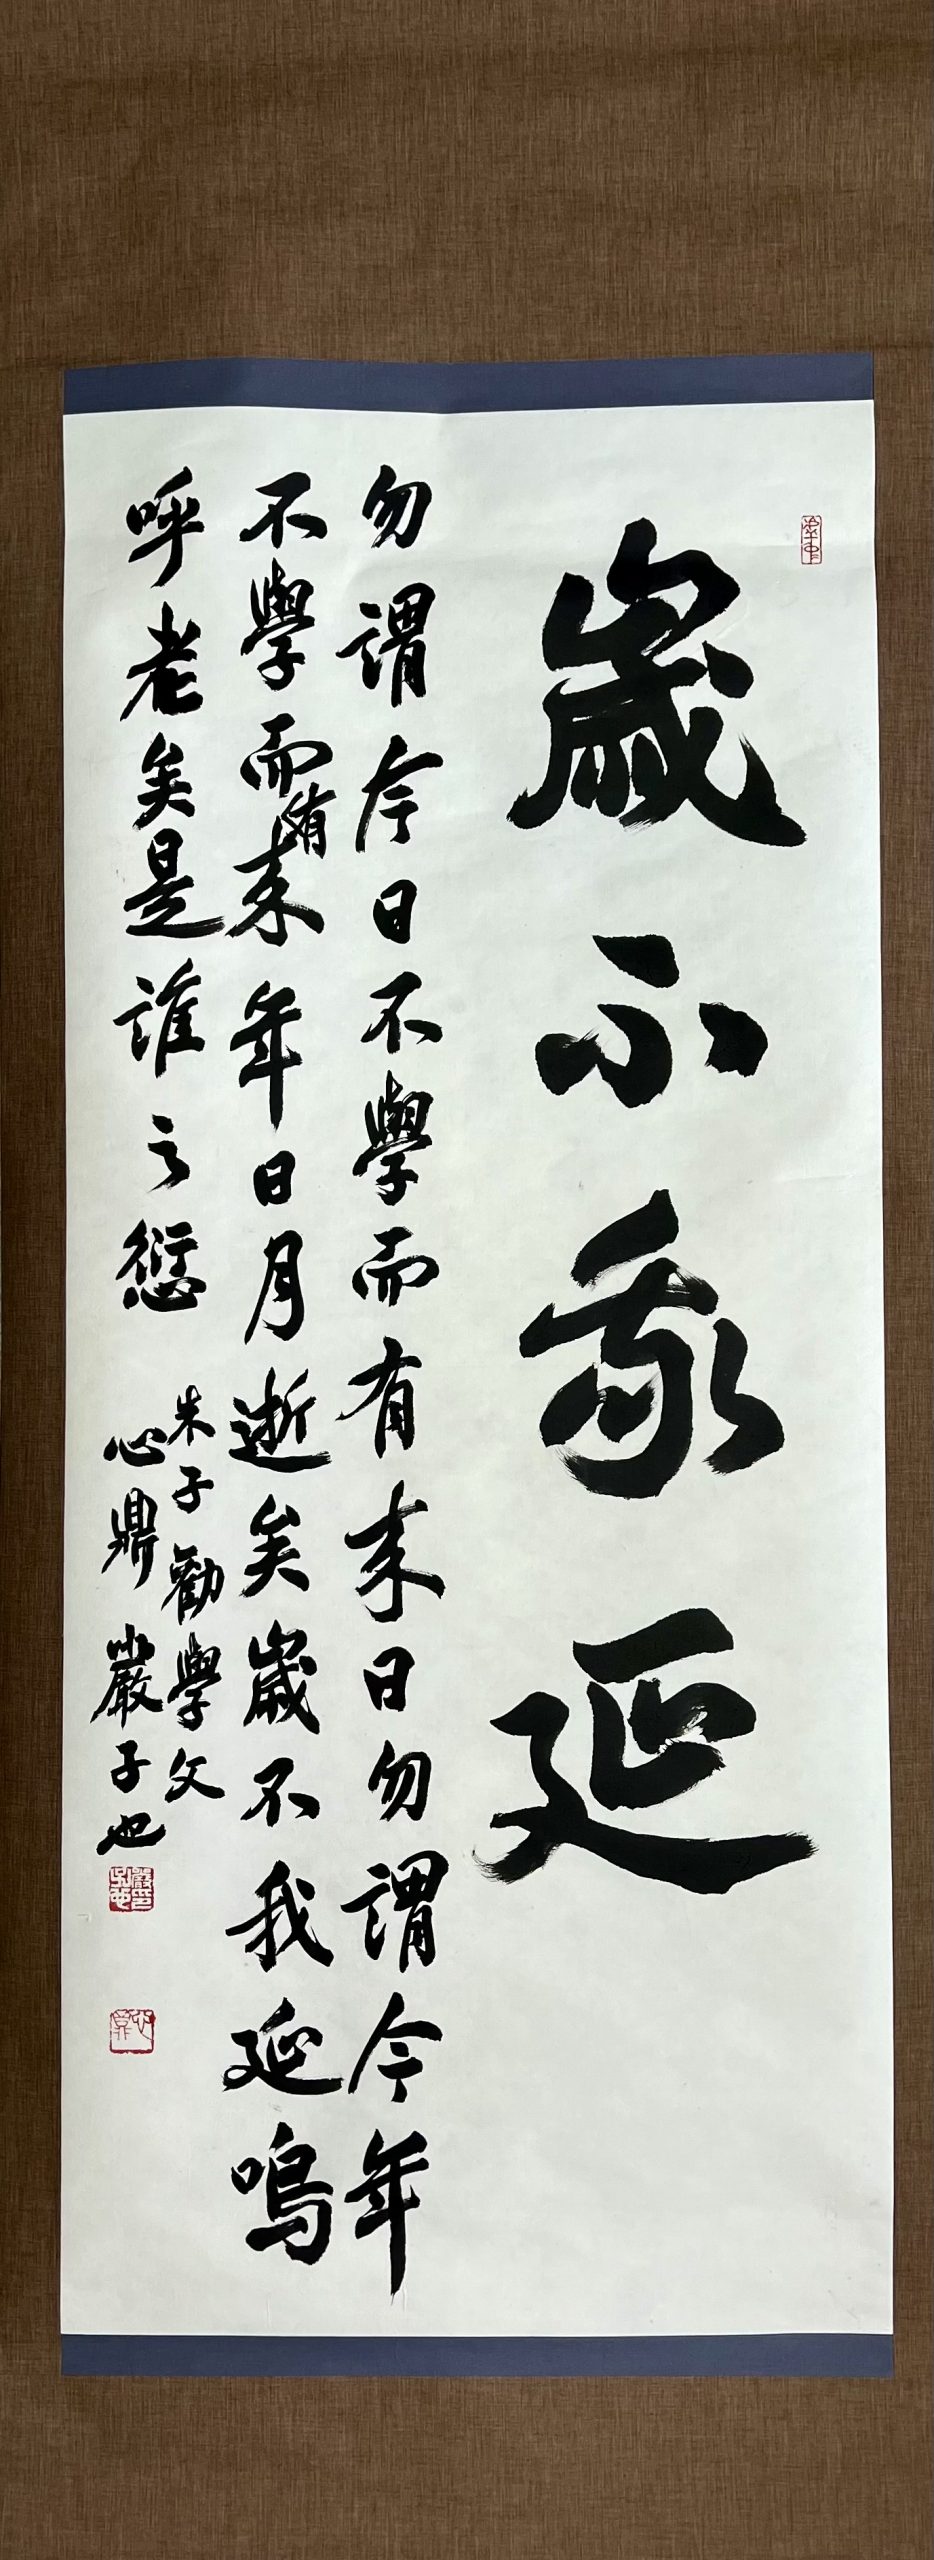 歲不我延
勿謂今日不學而有来日勿謂今年
不學而有来年日月逝矣歲不我延嗚
呼老矣是誰之愆
朱子勸學文
心鼎 嚴子也